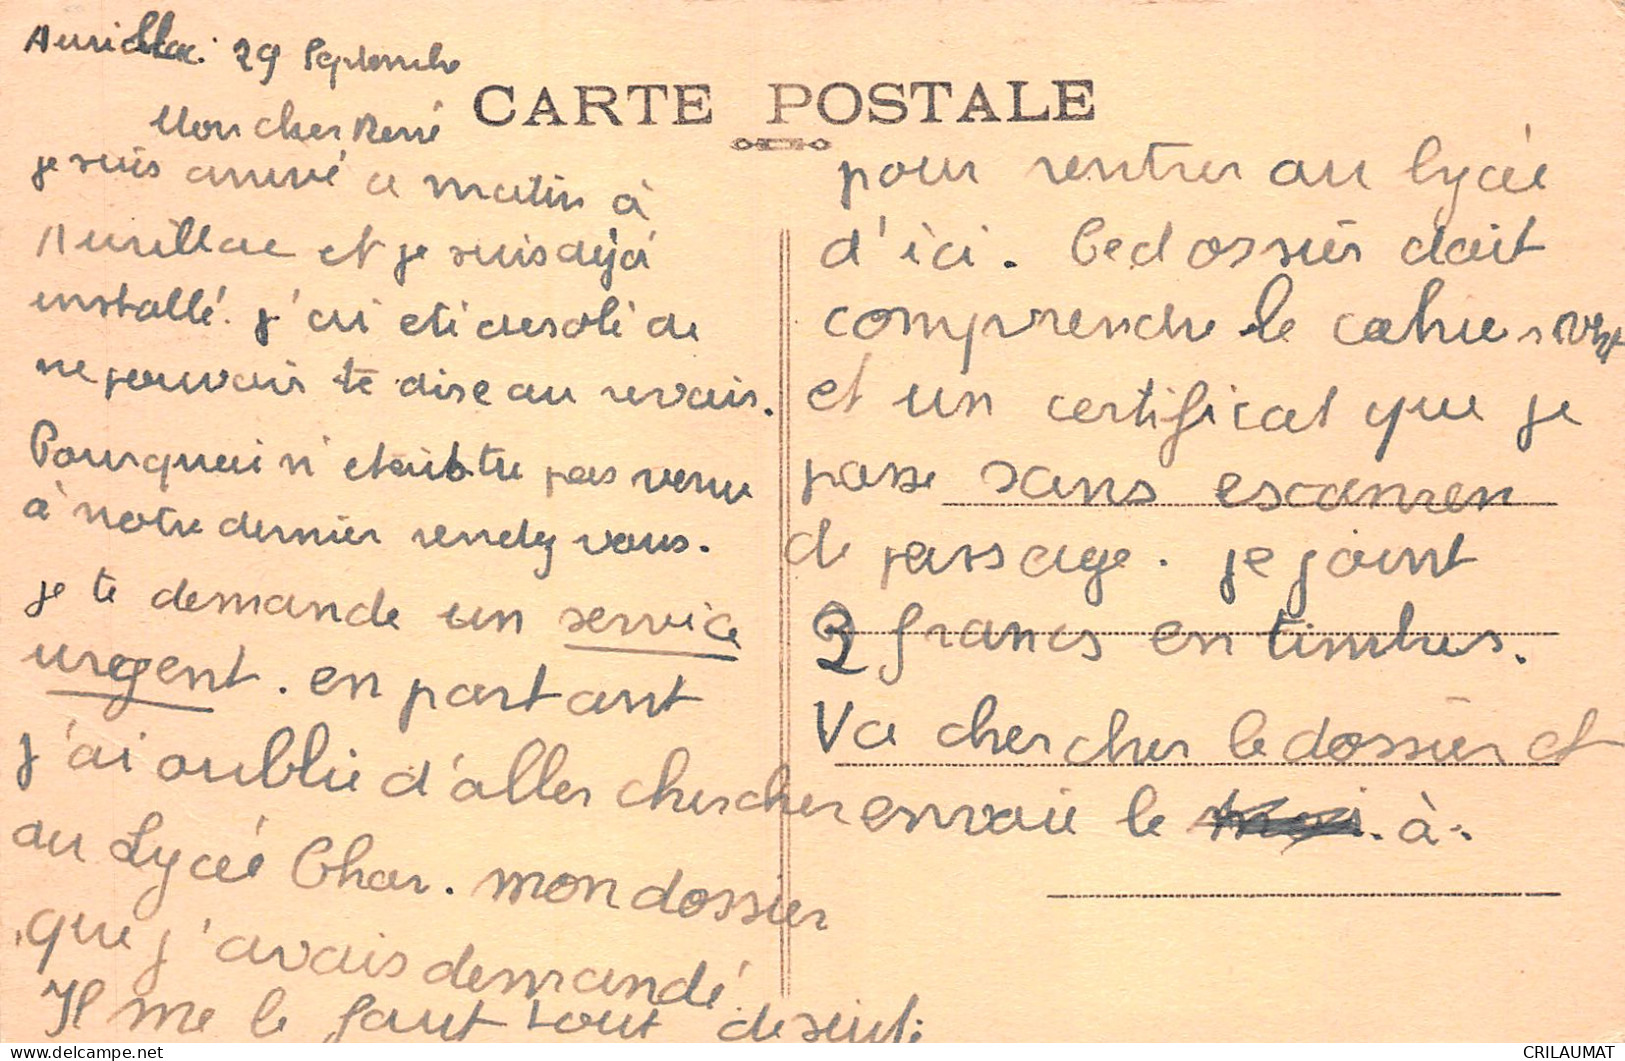 Aurillac. 29 Septembre
CARTE POSTALE
Mon cher René
je suis arrivé ce matin à
Aurillac et je suis déjà
installé. j'ai été desolé de
ne pouvoir te dire au revoir.
Pourquoi n'etais tu pas venu
à notre dernier rendez vous.
je te demande un service
urgent. en partant
j'ai oublié d'aller chercher
au Lycée Char. mon dossier
que j'avais demandé.
Il me le faut tout de suite
pour rentrer au lycée
d'ici. Ce dossier doit
comprendre le cahier
et un certificat que je
passe sans escamen
de passage. je joint
2 francs en timbres.
Va chercher le dossier et
envoie le à.
CRILAUMAT